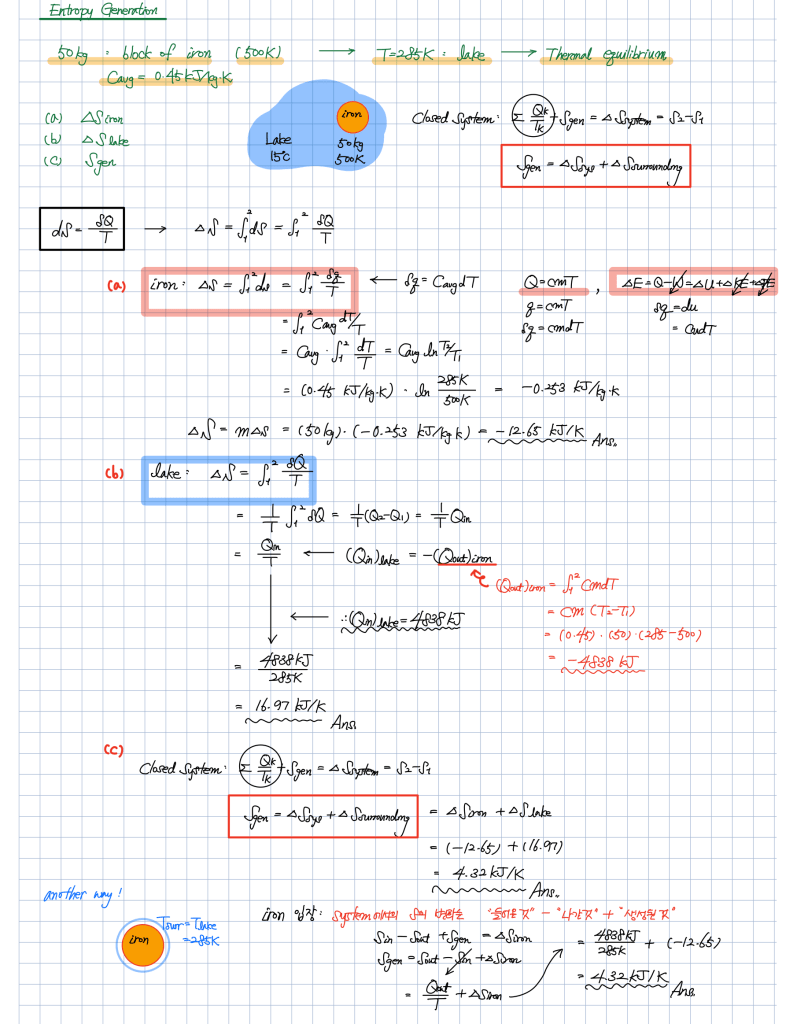 Entropy Generation
50kg : block of iron (500K) → T=285K : lake → Thermal equilibrium.
Cavg = 0.45 kJ/kg·K
(a) ΔSiron
(b) ΔSlake
(c) Sgen
iron
50kg
500K
Lake
15°C
Closed System: Σ Qk/Tk + Sgen = ΔSsystem = S2-S1
Sgen = ΔSsys + ΔSsurrounding
dS = δQ/T → ΔS = ∫₁² dS = ∫₁² δQ/T
(a) iron: Δs = ∫₁² ds = ∫₁² δq/T ← δq = Cavg dT
Q = cmT , ΔE = Q-W = ΔU+ΔKE+ΔPE
q = cmT
δq = cmdT
δq = du
= CavdT
= ∫₁² Cavg dT/T
= Cavg · ∫₁² dT/T = Cavg ln T2/T1
= (0.45 kJ/kg·K) · ln 285K/500K = -0.253 kJ/kg·K
ΔS = mΔs = (50kg)·(-0.253 kJ/kg k) = -12.65 kJ/K Ans.
(b) lake: ΔS = ∫₁² δQ/T
= 1/T ∫₁² δQ = 1/T (Q2-Q1) = 1/T Qin
= Qin/T ← (Qin)lake = -(Qout)iron
(Qout)iron = ∫₁² CmdT
= Cm (T2-T1)
= (0.45)·(50)·(285-500)
= -4838 kJ
← ∴(Qin)lake = 4838 kJ
= 4838kJ/285K
= 16.97 kJ/K
Ans.
(c)
Closed System: Σ Qk/Tk + Sgen = ΔSsystem = S2-S1
Sgen = ΔSsys + ΔSsurrounding = ΔSiron + ΔSlake
= (-12.65) + (16.97)
= 4.32 kJ/K
Ans.
another way!
iron
Tsurr = Tlake
= 285K
iron 입장: system에서의 S의 변화는 "들어온 것" - "나간 것" + "생성된 것"
Sin - Sout + Sgen = ΔSiron
Sgen = Sout - Sin + ΔSiron
= Qout/T + ΔSiron
= 4838kJ/285K + (-12.65)
= 4.32 kJ/K
Ans.